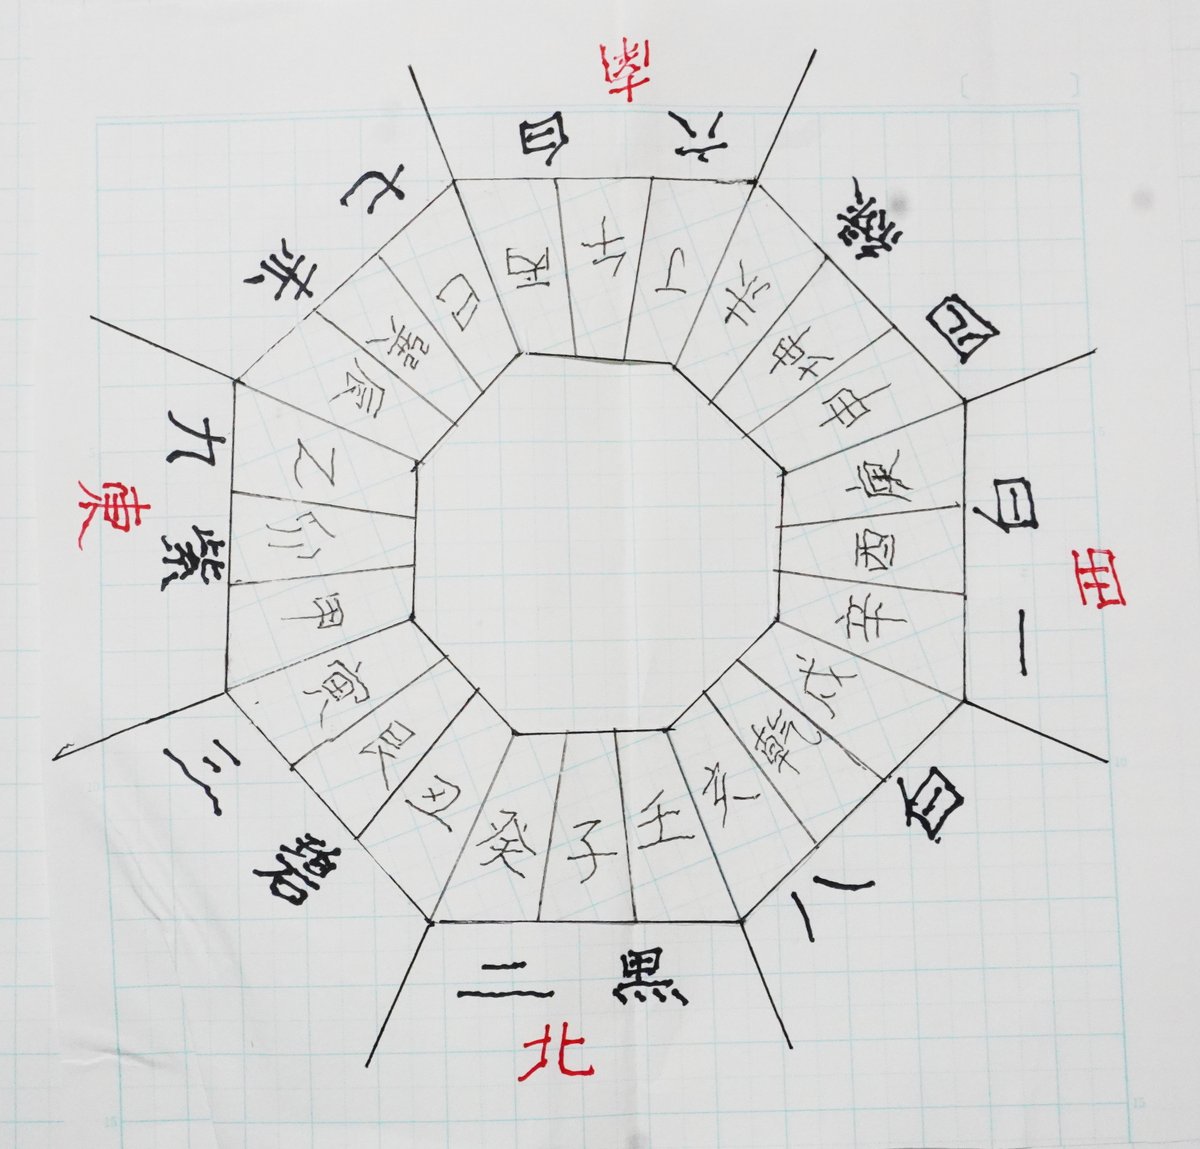 南
六白
四緑
西
一白
八白
二黒
北
三碧
東
九紫
七赤
丙
午
丁
未
坤
申
庚
酉
辛
戌
乾
亥
壬
子
癸
丑
艮
寅
甲
卯
乙
辰
巽
巳
5
5
10
15
15